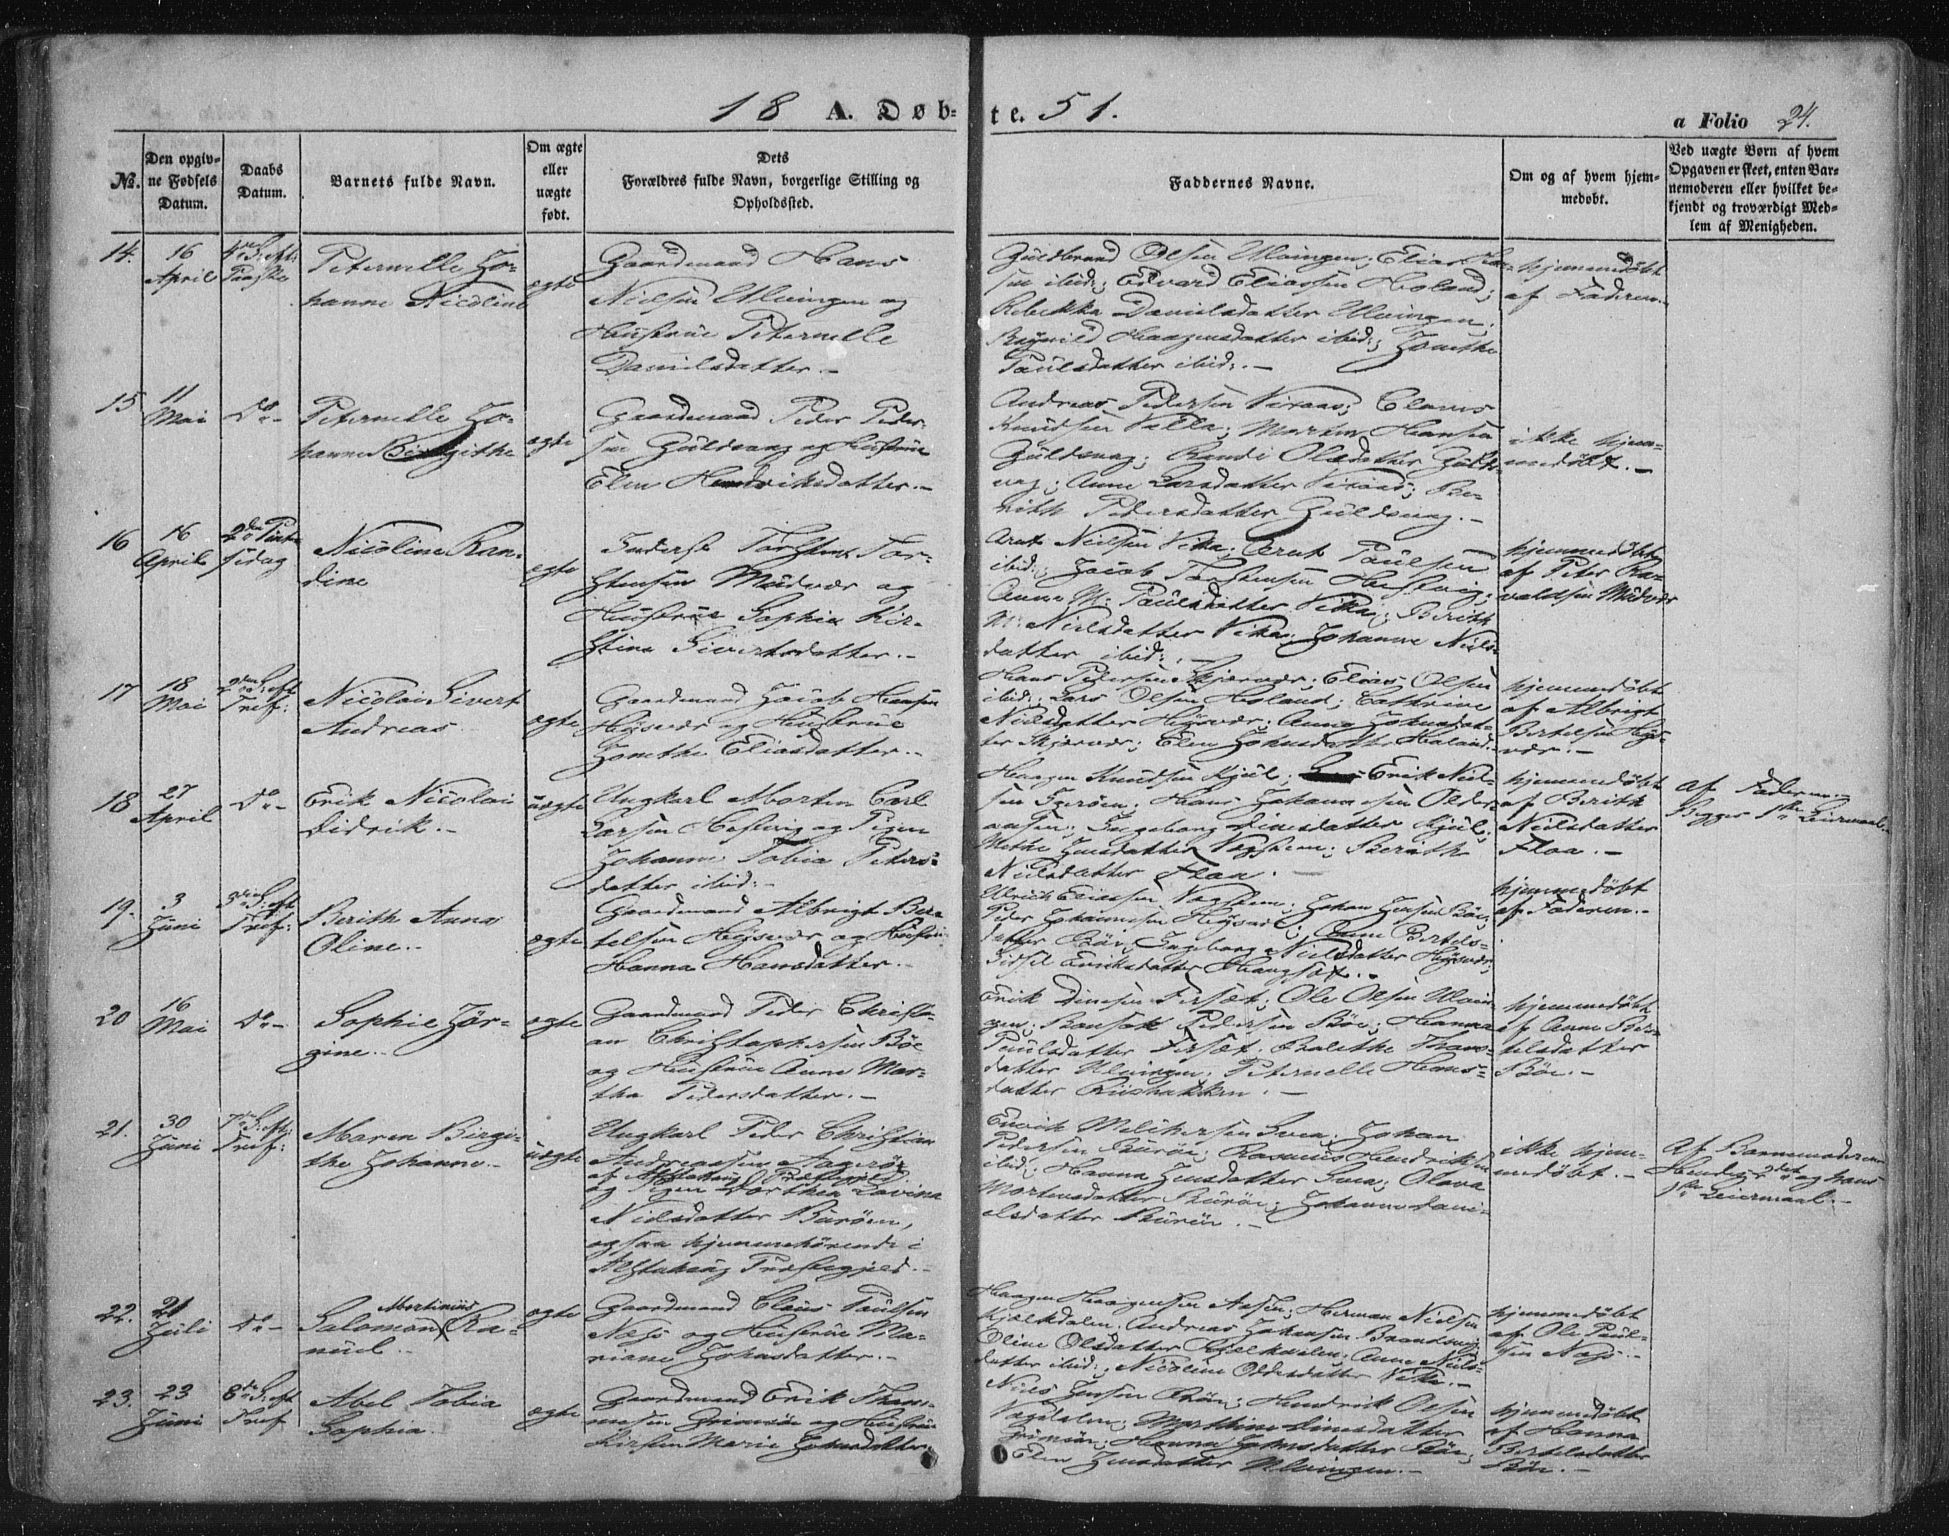 18 A. Døb-
te. 51.
a Folio 24.
No.
Den opgiv-
ne Fødsels
Datum.
Daabs
Datum.
Barnets fulde Navn.
Om ægte
eller
uægte
født.
Dets
Forældres fulde Navn, borgerlige Stilling og
Opholdssted.
Faddernes Navne.
Om og af hvem hjem-
medøbt.
Ved uægte Børn af hvem
Opgaven er skeet, enten Bar-
nemoderen eller hvilket be-
kjendt og troværdigt Med-
lem af Menigheden.
14.
16
April
4de S. eft.
Paaske
Peternelle Jo-
hanne Nicoline
ægte
Gaardmand Hans
Nielsen Ulvingen og
Hustrue Peternelle
Danielsdatter.-
Guldbrand Olsen Ulvingen; Elias
sen ibid:; Edvard Eliassen Holand;
Rebekka Danielsdatter Ulvingen;
Ragnild Haagensdatter ibid:; Jonethe
Paulsdatter ibid:.-
hjemmedøbt
af Faderen.-
15
11
Mai
Do-
Peternelle Jo-
hanne Birgithe
ægte
Gaardmand Peder Peder-
sen Guldsvag og Hustrue
Elen Hendriksdatter.-
Andreas Pedersen; Claus
Knudsen Valla; Morten Hansen
Guldsvag; Randi Olsdatter Guld-
vag; Anne Larsdatter; Be-
rith Pedersdatter Guldsvag.-
ikke hjem-
medøbt.-
16
16
April
2den Pint-
sedag
Nicoline Ran-
dine
ægte
Inderst Torsten Tor-
stensen Mudvær og
Hustrue Sophia Kir-
stine Sivertsdatter.-
Arnt Nielsen Vika; Arnt Paulsen
ibid:; Jacob Torstensen Hestvig;
Anne M. Paulsdatter Vika; Berith
M. Nielsdatter Vika; Johanne Niels-
datter ibid:.-
hjemmedøbt
af Peter Ra-
valdsen Mudvær
17
18
Mai
2den S. eft
Tref:
Nicolai Sivert
Andreas
ægte
Gaardmand Jacob Hansen
Høsvær og Hustrue
Jonethe Eliasdatter.-
Hans Pedersen Skjærvær; Elias Olsen
ibid:; Lars Olsen Holand; Cathrine
Nielsdatter Høsvær; Anne Johnsdat-
ter Skjærvær; Elen Johnsdatter Holand.-
hjemmedøbt
af Albrigt
Bertelsen Høs-
vær.-
18
27
April
Do-
Erik Nicolai
Didrik.-
uægte
Ungkarl Morten Carl
Larsen Hestvig og Pigen
Johanne Tobia Peders-
datter ibid:-
Haagen Knudsen Kjul; Erik Niel-
sen Igerøen; Hans Johannesen Older-
aasen; Ingeborg Dinesdatter Kjul;
Methe Jensdatter Vegsteen; Berith
Nielsdatter Floa.-
hjemmedøbt
af Berith
Nielsdatter
Floa.-
af Faderen.-
Begges 1ste Leiermaal.-
19.
3
Juni
3die S. eft
Tref:
Berith Anna
Oline.-
ægte
Gaardmand Albrigt Ber-
telsen Høsvær og Hustrue
Hanna Hansdatter.-
Ulrich Eriassen Vegsteen; Johan Jensen Bøe;
Peder Johannesen Høsvær; Anne Bertels-
datter Bøe; Ingeborg Nielsdatter Høsvær;
Sidsel Eriksdatter Haugset.-
hjemmedøbt
af Faderen.-
20
16
Mai
Do-
Sophie Jør-
gine.-
ægte
Gaardmand Peder Christi-
an Christophersen Bøe
og Hustrue Anne Mar-
tha Pedersdatter.-
Erik Dinesen Forsæt; Ole Olsen Ulvin-
gen; Pedersen Bøe; Hanna
Paulsdatter Forsæt; Hans-
datter Ulvingen; Peternelle Hans-
datter.-
hjemmedøbt
af Anne Ber-
telsdatter
Bøe.-
21.
30
Juni
7de S. eft.
Tref:
Maren Birgi-
the Johanne.-
uægte
Ungkarl Peder Christian
Andreassen Aagerøe
af Alstahoug Præstegjeld
og Pigen Dorthea Lovina
Nielsdatter Burøen,
ogsaa hjemmehørende i
Alstahoug Præstegjeld.-
Enoch Melkersen Svea; Johan
Pedersen Burøe; Rasmus Hendriksen
ibid:; Hanna Jensdatter Svea; Olava
Mortensdatter Burøe; Johanne Dani-
elsdatter Burøen.-
ikke hjem-
medøbt.-
Af Barnemoderen
Hendes 2det og hans
1ste Leiermaal.-
22.
21
Juli
Do-
Mortinius
Salomon Ra-
nuel.-
ægte
Gaardmand Claus Paulsen
Næs og Hustrue Ma-
riane Johnsdatter.-
Haagen Haagensen Aasen; Herman Nielsen
Kjelkdalen; Andreas Johansen Brandsvig;
Oline Olsdatter Kjelkdalen; Anne Niels-
datter ibid:; Nicoline Olsdatter Vika.-
hjemmedøbt
af Ole Paul-
sen Næs.-
23.
23
Juni
8de S. eft
Tref
Abel Tobia
Sophia.
ægte
Gaardmand Erik Thom-
mesen Grimsøe og Hustrue
Kirsten Marie Johnsdatter.
Niels Jensen Bøen; Hendrik Olsen
Vagdalen; Marthine Dinesdatter
Grimsøe; Hanna Johnsdatter Bøe;
Elen Jensdatter Ulvingen.-
hjemmedøbt
af Hanna
Bertelsdatter
Bøe.-